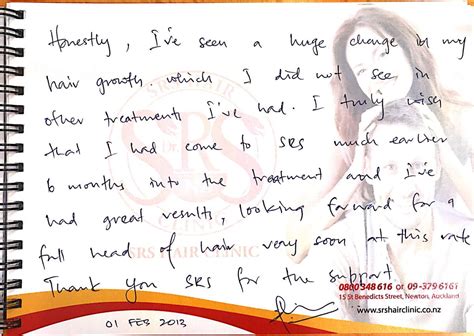 Honestly, I've seen a huge change in my
hair growth which I did not see in
other treatments I've had. I truly wish
that I had come to SRS much earlier
6 months into the treatment and I've
had great results, looking forward for a
full head of hair very soon at this rate
Thank you SRS for the support
SRS HAIR
SRS
CLINIC
SRS HAIR CLINIC
0800 348 616 or 09-379 6161
15 St Benedicts Street, Newton, Auckland
www.srshairclinic.co.nz
01 FEB 2013